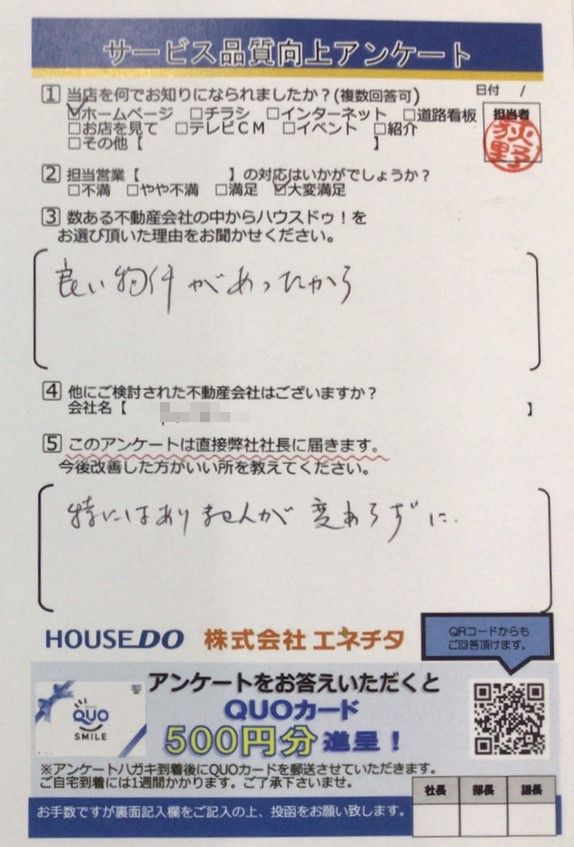 サービス品質向上アンケート
1 当店を何でお知りになられましたか?(複数回答可) 日付 /
☑ホームページ □チラシ □インターネット □道路看板 担当者
□お店を見て □テレビCM □イベント □紹介 荻野
□その他【 】
2 担当営業【 】の対応はいかがでしょうか?
□不満 □やや不満 □満足 ☑大変満足
3 数ある不動産会社の中からハウスドゥ!を
お選び頂いた理由をお聞かせください。
良い物件があったから
4 他にご検討された不動産会社はございますか?
会社名【 】
5 このアンケートは直接弊社社長に届きます。
今後改善した方がいい所を教えてください。
特にはありませんが変わらずに.
HOUSEDO 株式会社 エネチタ
QRコードからも
ご回答頂けます。
アンケートをお答えいただくと
QUOカード
500円分進呈!
QUO
SMILE
※アンケートハガキ到着後にQUOカードを郵送させていただきます。
ご自宅到着には1週間かかります。ご了承下さいませ。
社長 部長 課長
お手数ですが裏面記入欄をご記入の上、投函をお願い致します。